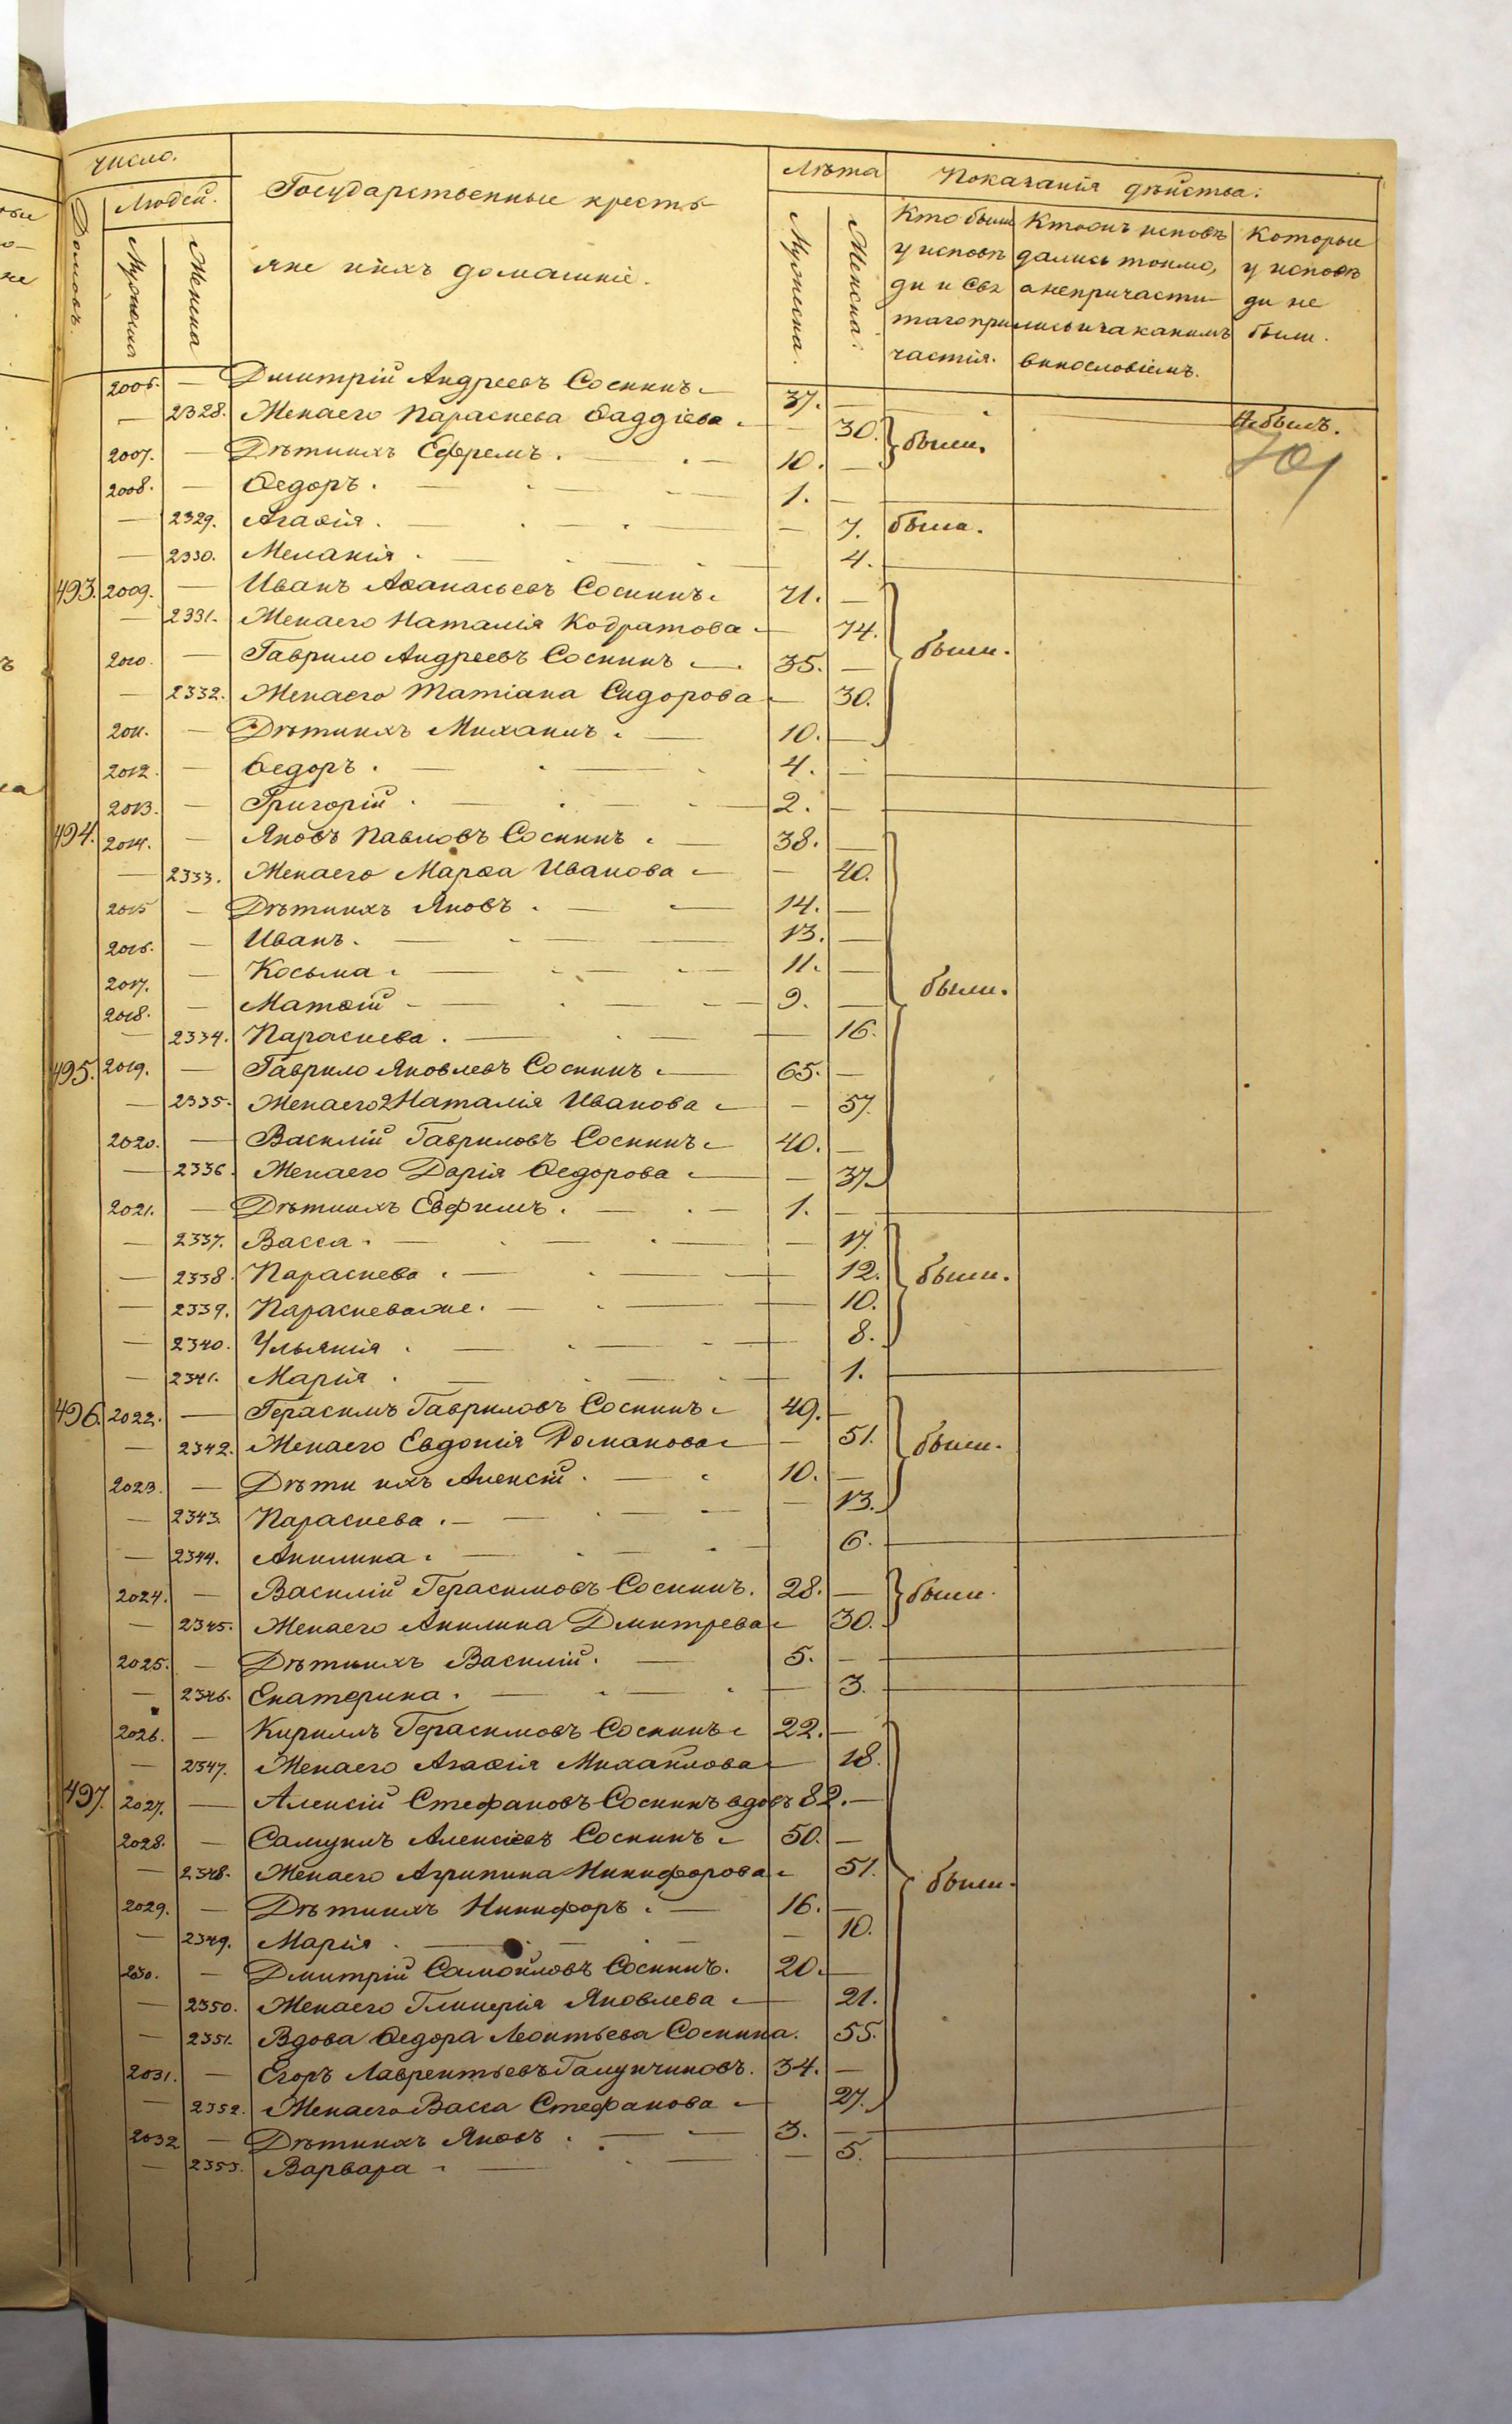 число.
Людей.
Домовъ.
Мужеска
Женска
Государственные кресть
яне и ихъ домашніе.
Лѣта
Мужеска.
Женска.
Показанія дѣйства.
Кто были у исповѣ ди и Свя таго при частія.
Кто онъ исповѣ дались токмо, а непричасти лись и за какимъ винословіемъ.
Которые у исповѣ ди не были.
2006. — Дмитрій Андреевъ Соснинъ — 37. — Не былъ.
— 2328. Жена его Параскева Фаддіева — 30. были.
701
2007. — Дѣти ихъ Ефремъ. 10. —
2008. — Ѳедоръ. 1. —
— 2329. Агаѳія. — 7. была.
— 2330. Меланія. 4.
493. 2009. — Иванъ Аѳанасьевъ Соснинъ 71. —
— 2331. Жена его Наталія Кодратова — 74.
2010. — Гаврило Андреевъ Соснинъ — 35. — были.
— 2332. Жена его Татіана Сидорова — 30.
2011. — Дѣти ихъ Михаилъ. 10. —
2012. — Ѳедоръ. 4. —
2013. — Григорій. 2. —
494. 2014. — Яковъ Павловъ Соснинъ. 38. —
— 2333. Жена его Марѳа Иванова — 40.
2015 — Дѣти ихъ Яковъ. 14. —
2016. — Иванъ. 13. —
2017. — Косьма. 11. —
2018. — Матѳій 9. — были.
— 2334. Параскева. — 16.
495. 2019. — Гаврило Яковлевъ Соснинъ 65. —
— 2335. Жена его 2 Наталія Иванова — 57.
2020. — Василій Гавриловъ Соснинъ 40. —
— 2336. Жена его Дарія Ѳедорова — 37.
2021. — Дѣти ихъ Евфимъ. 1. —
— 2337. Васса. — 17.
— 2338. Параскева. — 12. были.
— 2339. Параскева же. — 10.
— 2340. Ульянія. — 8.
— 2341. Марія. — 1.
496. 2022. — Герасимъ Гавриловъ Соснинъ 49. —
— 2342. Жена его Евдокія Романова — 51. были.
2023. — Дѣти ихъ Алексій. 10. —
— 2343. Параскева. — 13.
— 2344. Акилина. 6.
2024. — Василій Герасимовъ Соснинъ. 28. — были.
— 2345. Жена его Акилина Дмитрева 30.
2025. — Дѣти ихъ Василій. 5. —
— 2346. Екатерина. — 3.
2026. — Кирилъ Герасимовъ Соснинъ 22. —
— 2347. Жена его Агаѳія Михайлова 18.
497. 2027. — Алексій Стефановъ Соснинъ вдовъ 82. —
2028. — Самуилъ Алексіевъ Соснинъ 50. —
— 2348. Жена его Агрипина Никифорова 51. были.
2029. — Дѣти ихъ Никифоръ. 16. —
— 2349. Марія. — 10.
2030. — Дмитрій Самойловъ Соснинъ. 20. —
— 2350. Жена его Гликерія Яковлева — 21.
— 2351. Вдова Ѳедора Леонтьева Соснина. 55.
2031. — Егоръ Лаврентьевъ Галунчиковъ. 34. —
— 2352. Жена его Васса Стефанова — 27.
2032 — Дѣти ихъ Яковъ. 3. —
— 2353. Варвара — 5.